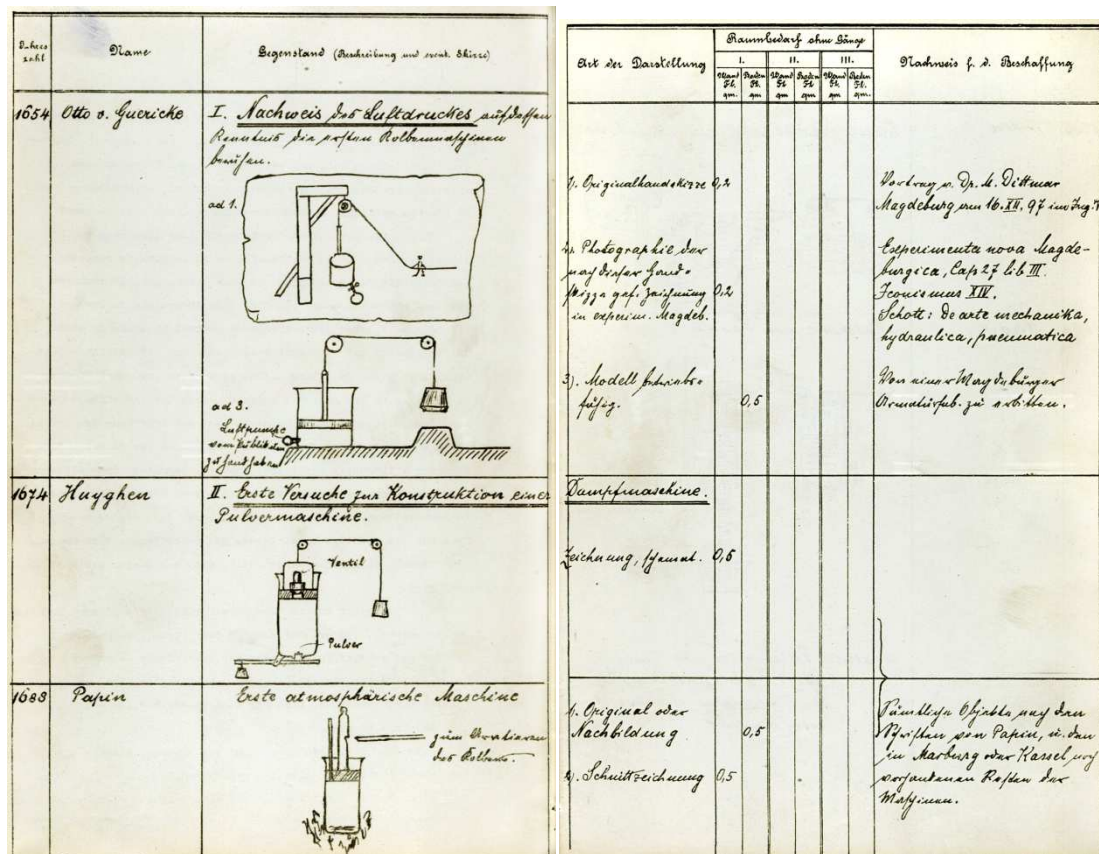 Jahreszahl
Name
Gegenstand (Beschreibung und event. Skizze)
1654 Otto v. Guericke
I. Nachweis des Luftdruckes auf dessen
Kenntnis die ersten Kolbenmaschinen
beruhen.
ad 1.
ad 3.
Luftpumpe
vom Publikum
zu handhaben
1674 Huyghen
II. Erste Versuche zur Konstruktion einer
Pulvermaschine.
Ventil
Pulver
1688 Papin
Erste atmosphärische Maschine
zum Arretieren
des Kolbens.
Art der Darstellung
Raumbedarf ohne Gänge
I. II. III.
Wand Fl. qm. Boden Fl. qm. Wand Fl. qm. Boden Fl. qm. Wand Fl. qm. Boden Fl. qm.
Nachweis f. d. Beschaffung
1). Originalhandskizze 0,2
Vortrag v. Dr. M. Dittmar
Magdeburg am 16. XII. 97 im Ing. V
2). Photographie der
nach dieser Hand-
skizze gef. Zeichnung 0,2
in experim. Magdeb.
Experimenta nova Magde-
burgica, Cap 27 lib III.
Iconismus XIV.
Schott: De arte mechanika,
hydraulica, pneumatica
3). Modell betriebs-
fähig. 0,5
Von einer Magdeburger
Armaturfab. zu erbitten.
Dampfmaschine.
Zeichnung, schemat. 0,5
1). Original oder
Nachbildung 0,5
2). Schnittzeichnung 0,5
Sämtliche Objekte nach den
Schriften von Papin, u. den
in Marburg oder Kassel noch
vorhandenen Resten der
Maschinen.